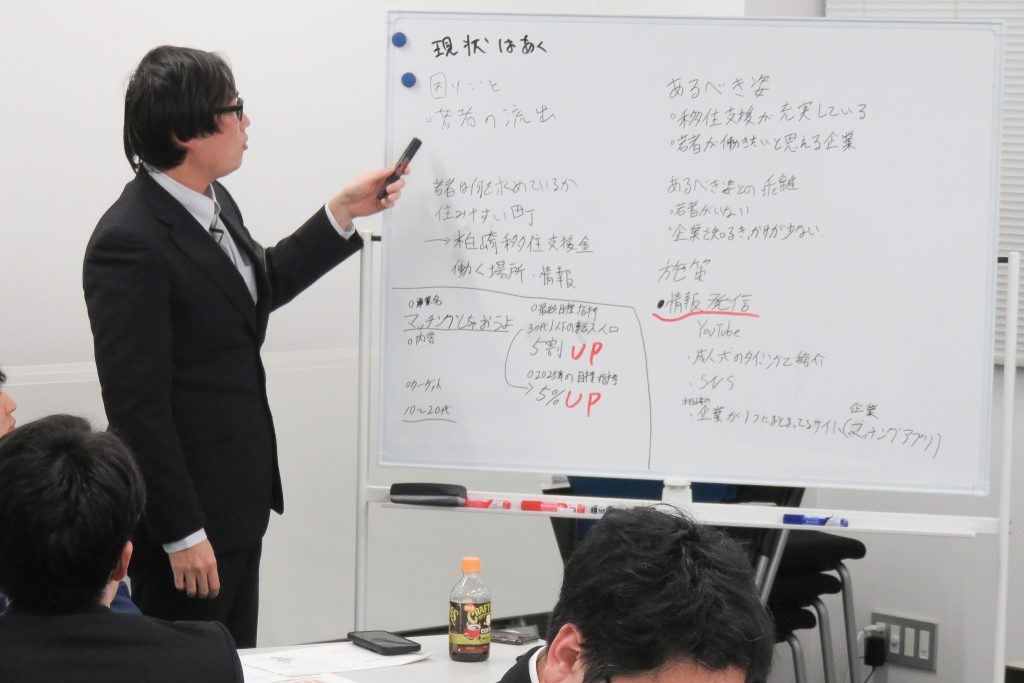 現状はあく
困りごと
・若者の流出
若者は何を求めているか
・住みやすい町
→柏崎移住支援金
働く場所・情報
○事業名
マッチングしちゃおうよ
○内容
○ターゲット
10～20代
○最終目標指標
30代以下の転入人口
5割UP
○2025年の目標指標
5%UP
あるべき姿
○移住支援が充実している
○若者が働きたいと思える企業
あるべき姿との乖離
○若者がいない
○企業を知るきっかけが少ない
施策
●情報発信
YouTube
・成人式のタイミングで紹介
・SNS
柏崎の
・企業が1つにまとまってるサイト(マッチングアプリ)
企業
CRAFT